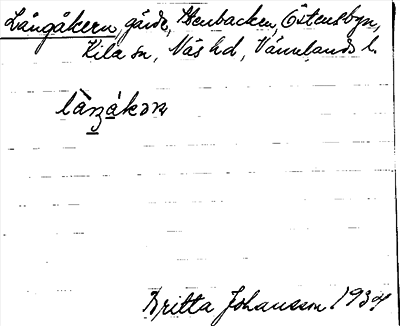 Långåkern, gärde, Stenbacken, Östensbyn,
Kila sn, Näs hd, Värmlands l.
Britta Johansson 1934